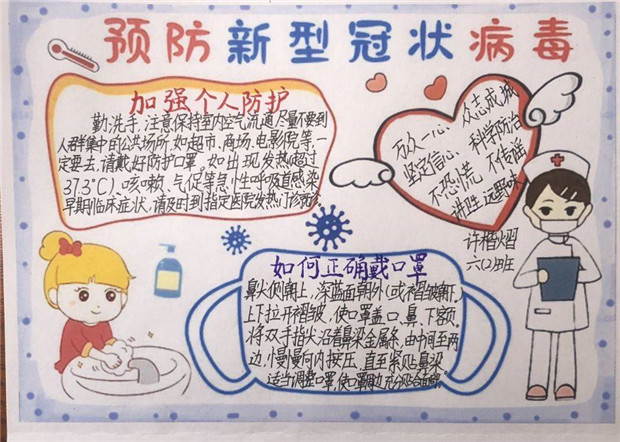 预防新型冠状病毒
加强个人防护
勤洗手,注意保持室内空气流通,尽量不要到
人群集中的公共场所,如超市、商场、电影院等,一
定要去,请戴好防护口罩。如出现发热(超过
37.3℃)、咳嗽、气促等急性呼吸道感染
早期临床症状,请及时到指定医院发热门诊就诊
万众一心、众志成城
坚定信心、科学防治
不恐慌 不传谣
讲卫生 远野味
许楷熠
六(2)班
如何正确戴口罩
鼻尖侧朝上,深蓝面朝外(或褶皱朝下)
上下拉开褶皱,使口罩盖口、鼻、下额。
将双手指尖沿着鼻梁金属条,由中间至两
边,慢慢向内按压,直至紧贴鼻梁
适当调整口罩,使口罩周边充分贴合面部